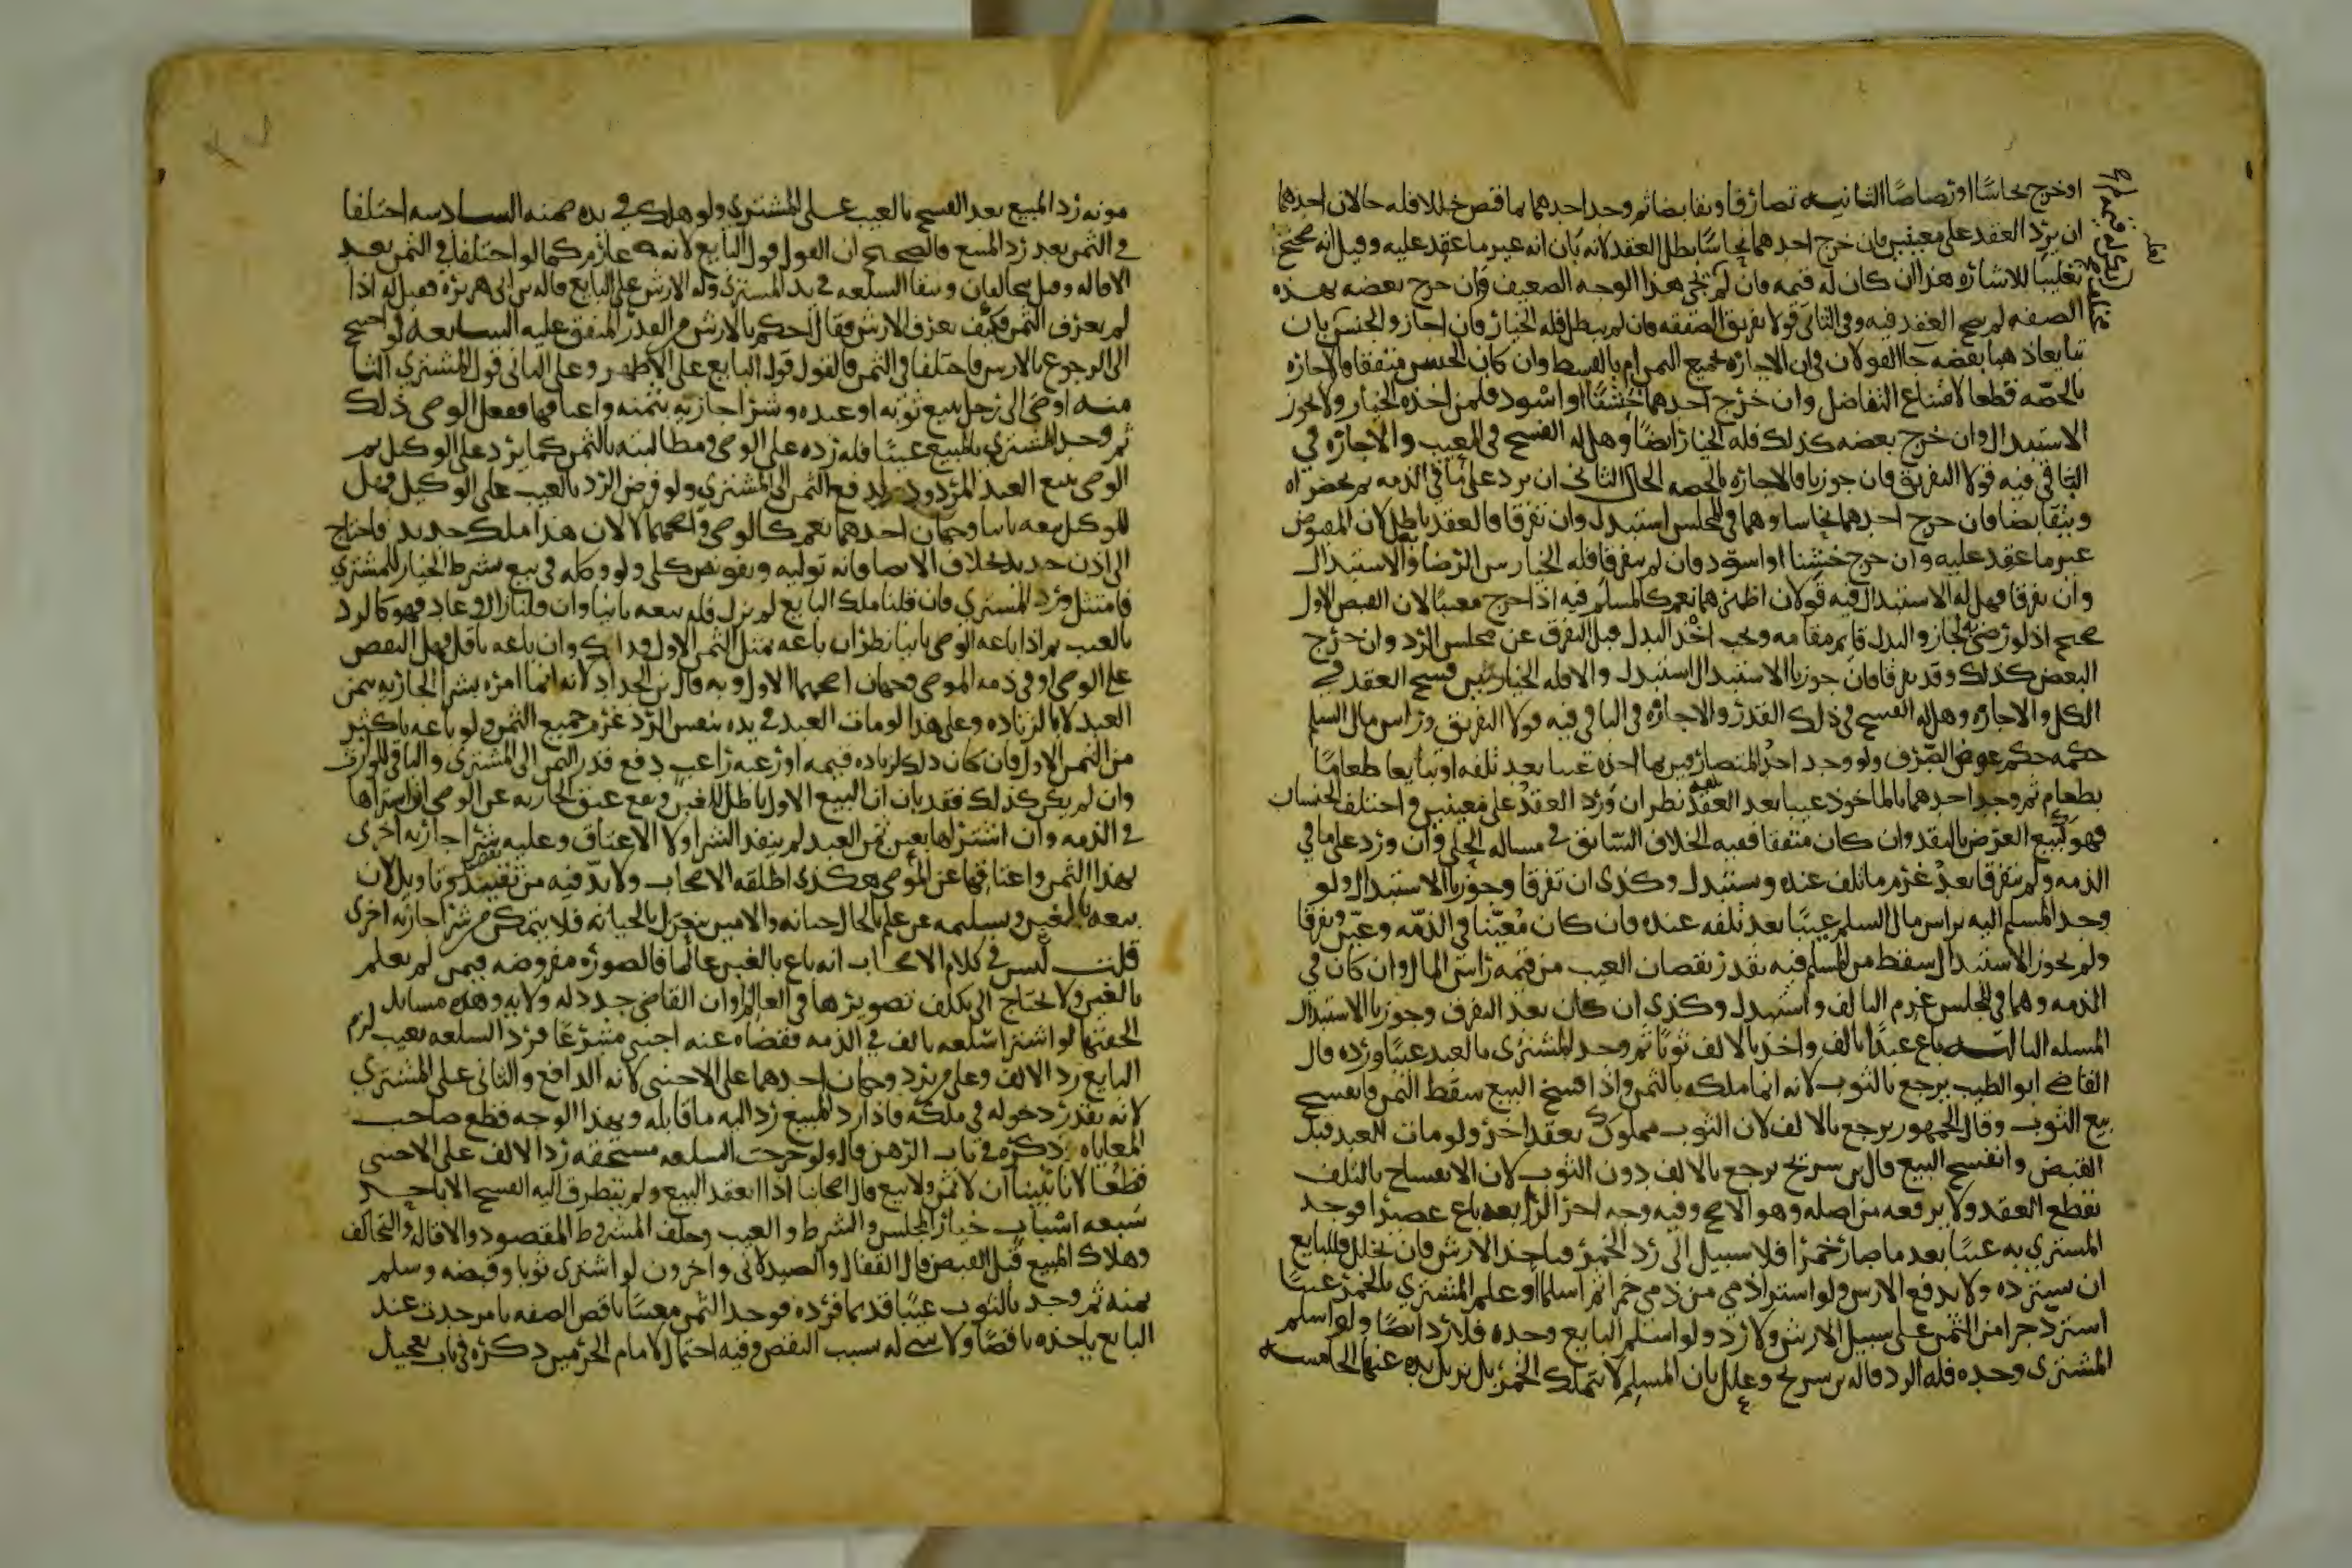 او خرج نحاسا او رصاصا الثانيه تصارفا وتقابضا ثم وجد احدهما بما قبض خللا فله حالان احدهما
ان يرد العقد على معينين فان خرج احدهما نحاسا بطل العقد لانه بان انه غير ما عقد عليه وقيل انه صحيح
تغليبا للاشاره هذا ان كان له قيمه فان لم تجئ هذا الوجه الضعيف وان خرج بعضه بهذه
الصفه لم يصح العقد فيه وفي الثاني قولا تفريق الصفقه فان لم يبطل فله الخيار فان اجاز والجنس بان
تبايعا ذهبا بفضه جا القولان في ان الاجازه بجميع الثمن ام بالقسط وان كان الجنس متفقا فالاجازه
بالحصه قطعا لامتناع التفاضل وان خرج احدهما خشنا او اسود فلمن اخذه الخيار ولا يجوز
الاستبدال وان خرج بعضه كذلك فله الخيار ايضا وهل له الفسخ في المعيب والاجازه في
الباقي فيه قولا التفريق فان جوزنا فالاجازه بالحصه الحال الثاني ان يرد على ما في الذمه ثم يحضراه
ويتقابضا فان خرج احدهما نحاسا وهما في المجلس استبدل وان تفرقا فالعقد باطل لان المقبوض
غير ما عقد عليه وان خرج خشنا او اسود فان لم يتفرقا فله الخيار بين الرضا والاستبدال
وان تفرقا فهل له الاستبدال فيه قولان اظهرهما نعم كالمسلم فيه اذا خرج معيبا لان القبض الاول
صحيح اذ لو رضي به لجاز والبدل قايم مقامه ويجب اخذ البدل قبل التفرق عن مجلس الرد وان خرج
البعض كذلك وقد تفرقا فان جوزنا الاستبدال استبدل والا فله الخيار بين فسخ العقد في
الكل والاجازه وهل له الفسخ في ذلك القدر والاجازه في الباقي فيه قولا التفريق وراس مال السلم
حكمه حكم عوض الصرف ولو وجد احد المتصارفين بما اخذه عيبا بعد تلفه او تبايعا طعاما
بطعام ثم وجد احدهما بالماخوذ عيبا بعد تلفه نظر ان ورد العقد على معينين واختلف الجنسان
فهو كبيع العرض بالنقد وان كان متفقا ففيه الخلاف السابق في مساله الحلي وان ورد على ما في
الذمه ولم يتفرقا بعد غرم ما تلف عنده ويستبدل وكذى ان تفرقا وجوزنا الاستبدال ولو
وجد المسلم اليه براس مال السلم عيبا بعد تلفه عنده فان كان معينا او في الذمه وعين وتفرقا
ولم يجوز الاستبدال سقط من المسلم فيه بقدر نقصان العيب من قيمه راس المال وان كان في
الذمه وهما في المجلس غرم التالف واستبدل وكذى ان كان بعد التفرق وجوزنا الاستبدال
المسله الثالثه باع عبدا بالف واخذ بالالف ثوبا ثم وجد المشتري بالعبد عيبا ورده قال
القاضي ابو الطيب يرجع بالثوب لانه انما ملكه بالثمن واذا فسخ البيع سقط الثمن فانفسخ
بيع الثوب وقال الجمهور يرجع بالالف لان الثوب مملوك بعقد اخر ولو مات العبد قبل
القبض وانفسخ البيع قال بن سريج يرجع بالالف دون الثوب لان الانفساخ بالتلف
يقطع العقد ولا يرفعه من اصله وهو الاصح وفيه وجه اخر الرابعه باع عصيرا فوجد
المشتري به عيبا بعد ما صار خمرا فلا سبيل الى رد الخمر فياخذ الارش فان تخلل فللبايع
ان يسترده ولا يدفع الارش ولو اشترا ذمي من ذمي خمرا ثم اسلما وعلم المشتري بالخمر عيبا
استرد جزا من الثمن على سبيل الارش ولا رد ولو اسلم البايع وحده فلا رد ايضا ولو اسلم
المشتري وحده فله الرد قاله بن سريج وعلل بان المسلم لا يتملك الخمر بل يزيل يده عنها الخامسه
مونه رد المبيع بعد الفسخ بالعيب على المشتري ولو هلك في يده ضمنه السادسه اختلفا
في الثمن بعد رد المبيع فالصحيح ان القول قول البايع لانه غارم كما لو اختلفا في الثمن بعد
الاقاله وقيل يتحالفان وتبقا السلعه في يد المشتري وله الارش على البايع قاله بن ابي هريره فقيل له اذا
لم يعرف الثمن فكيف يعرف الارش فقال احكم بالارش من القدر المتفق عليه السابعه لو احتيج
الى الرجوع بالارش فاختلفا في الثمن فالقول قول البايع على الاظهر وعلى الثاني قول المشتري الثا
منه اوصى الى رجل ببيع ثوبه او عبده وشرا جاريه بثمنه واعتاقها ففعل الوصي ذلك
ثم وجد المشتري بالمبيع عيبا فله رده على الوصي ومطالبته بالثمن كما يرد على الوكيل ثم
الوصي يبيع العبد المردود ليدفع الثمن الى المشتري ولو فرض الرد بالعيب على الوكيل فهل
للوكيل بيعه ثانيا وجهان احدهما نعم كالوصي واصحهما لا لان هذا ملك جديد فاحتاج
الى اذن جديد بخلاف الايصا فانه توليه وتفويض كلي ولو وكله في بيع بشرط الخيار للمشتري
فامتثل ورد المشتري فان قلنا ملك البايع لم يزل فله بيعه ثانيا وان قلنا زال وعاد فهو كالرد
بالعيب ثم اذا باعه الوصي ثانيا نظر ان باعه بمثل الثمن الاول فذاك وان باعه باقل فهل النقص
على الوصي او في ذمه الموصي وجهان اصحهما الاول وبه قال بن الحداد لانه انما امره بشرا الجاريه بثمن
العبد لا بالزياده وعلى هذا لو مات العبد في يده بنفس الرد غرم جميع الثمن ولو باعه باكثر
من الثمن الاول فان كان ذلك لزياده قيمه او رغبه راغب دفع قدر الثمن الى المشتري والباقي للوارث
وان لم يكن كذلك فقد بان ان البيع الاول باطل للغبن ويقع عتق الجاريه عن الوصي ان اشتراها
في الذمه وان اشتراها بعين ثمن العبد لم ينفذ الشرا ولا الاعتاق وعليه شرا جاريه اخرى
بهذا الثمن واعتاقها عن الموصي هكذى اطلقه الاصحاب ولا بد فيه من تقييد وتاويل لان
بيعه بالغبن وتسليمه عن علم بالحال خيانه والامين ينعزل بالخيانه فلا يتمكن من شرا جاريه اخرى
قلت ليس في كلام الاصحاب انه باع بالغبن عالما فالصوره مفروضه فيمن لم يعلم
بالغبن ولا يحتاج الى تكلف تصويرها في العالم وان القاضي جدد له ولايه وهذه مسايل
الحقتها لو اشترا سلعه بالف في الذمه فقضاه عنه اجنبي متبرعا فرد السلعه بعيب لزم
البايع رد الالف وعلى من يرد وجهان احدهما على الاجنبي لانه الدافع والثاني على المشتري
لانه يقدر دخوله في ملكه فاذا رد المبيع رد اليه ما قابله وبهذا الوجه قطع صاحب
المعاياه ذكره في باب الرهن قال ولو خرجت السلعه مستحقه رد الالف على الاجنبي
قطعا لانا تبينا ان لا ثمن ولا بيع قال اصحابنا اذا انعقد البيع ولم يتطرق اليه الفسخ الا باحد
سبعه اسباب خيار المجلس والشرط والعيب وخلف المشروط المقصود والاقاله والتحالف
وهلاك المبيع قبل القبض قال القفال والصيدلاني واخرون لو اشترى ثوبا وقبضه وسلم
ثمنه ثم وجد بالثوب عيبا قديما فرده فوجد الثمن معيبا ناقص الصفه بامر حدث عند
البايع ياخذه ناقصا ولا شي له بسبب النقص وفيه احتمال لامام الحرمين ذكره في باب تعجيل